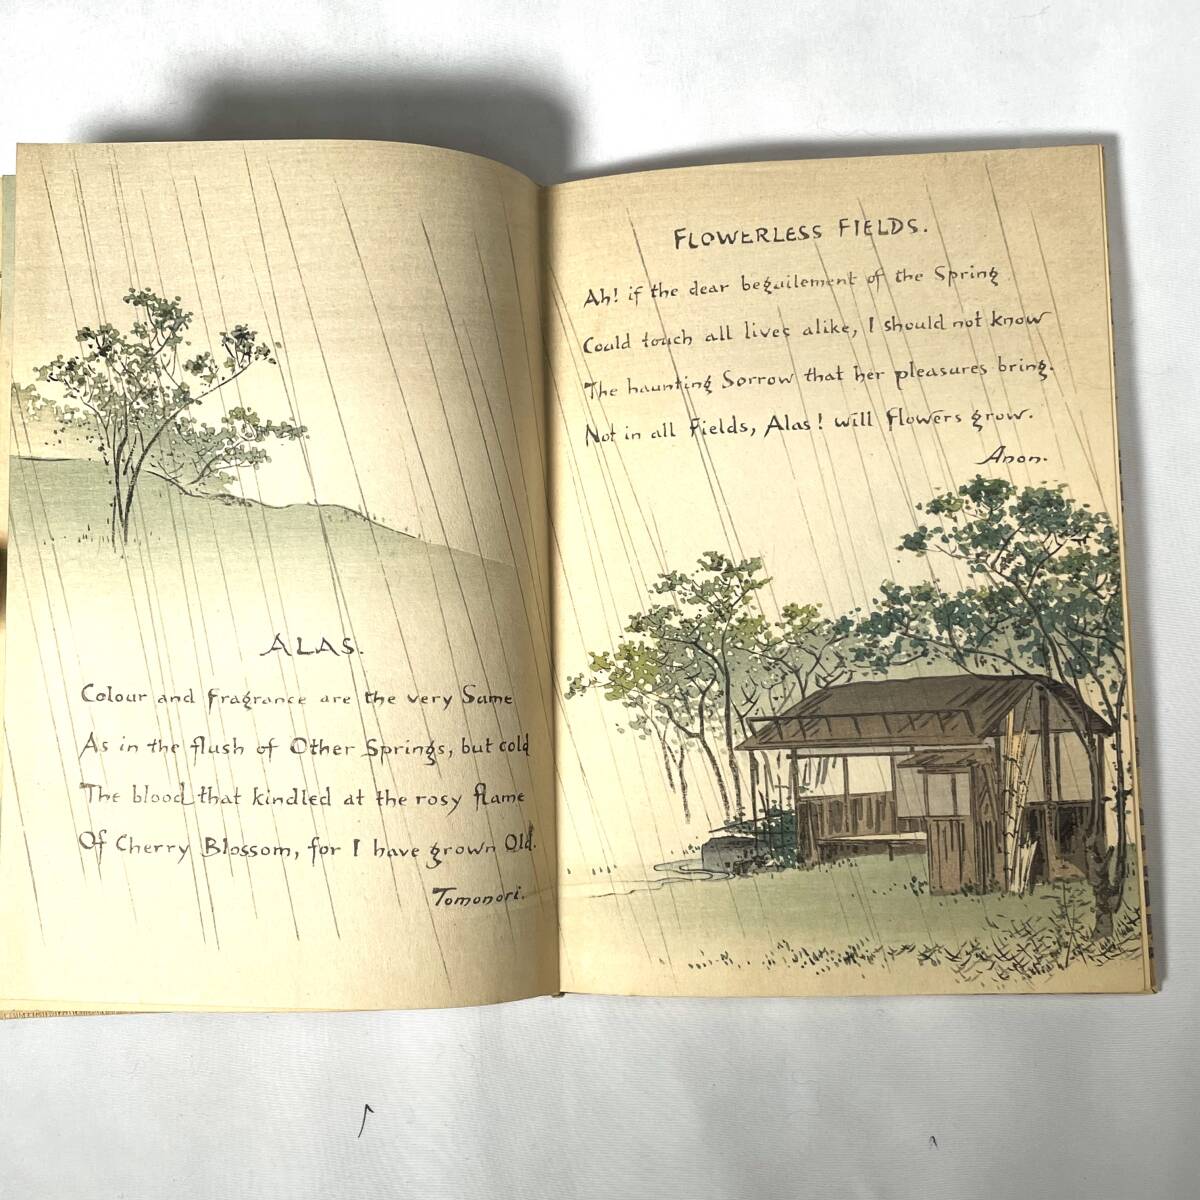 ALAS.
Colour and fragrance are the very Same
As in the flush of Other Springs, but cold
The blood that kindled at the rosy flame
Of Cherry Blossom, for I have grown Old.
Tomonori.
FLOWERLESS FIELDS.
Ah! if the dear beguilement of the Spring
Could touch all lives alike, I should not know
The haunting Sorrow that her pleasures bring.
Not in all Fields, Alas! will flowers grow.
Anon.